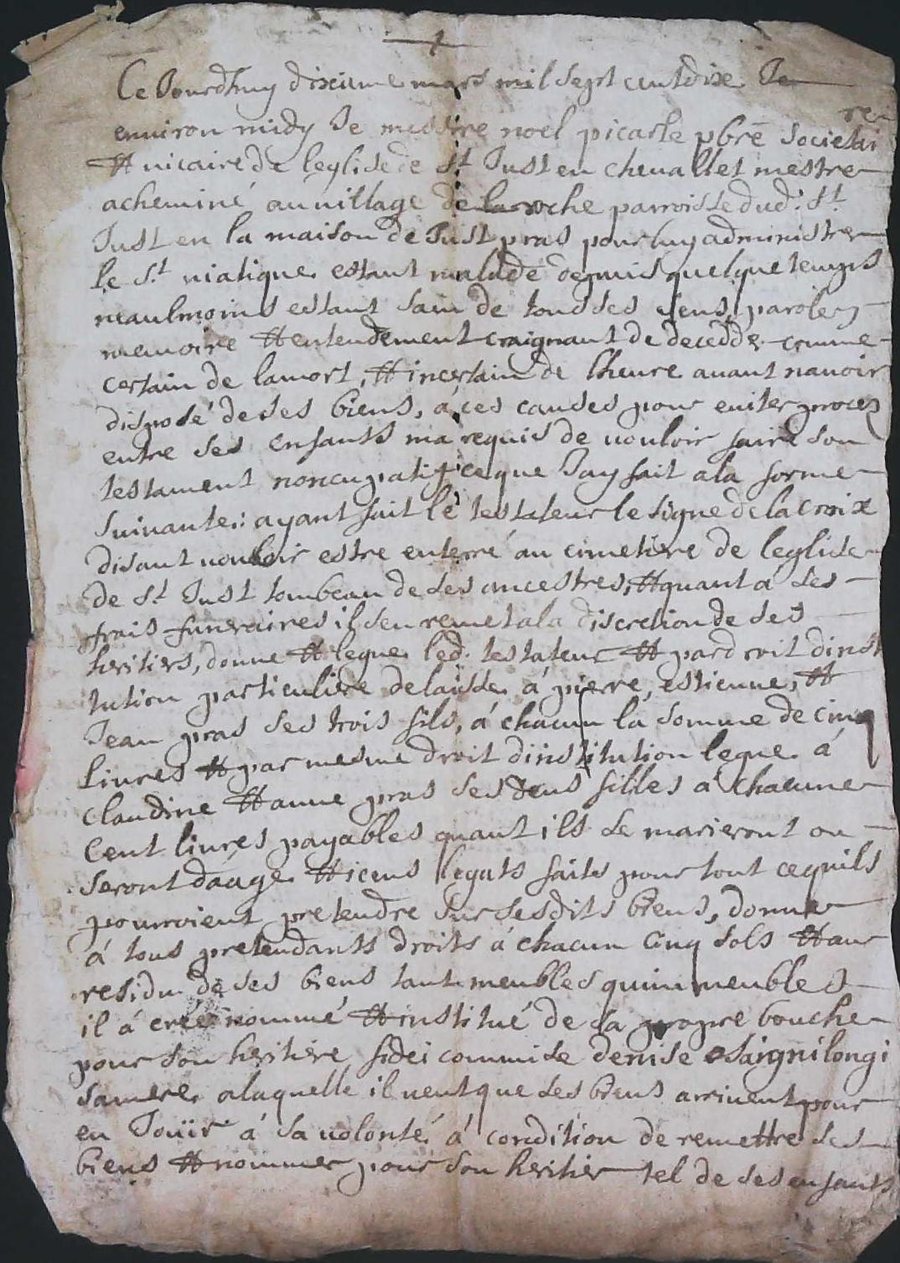 Ce Jourdhuy dixieme mars mil sept cent dixe Je
environ midy Je messire noel picarle pbre societai
re
et vicaire de leglise de St Just en chevallet mestre
acheminé au village de la roche parroisse dud. St
Just en la maison de Just pras pour luy administrer
le St viatique estant malade depuis quelque temps
neaulmoins estant sain de tous ses sens parole
memoire et entendement craignant de decedder comme
certain de la mort, et incertain de lheure avant navoir
disposé de ses biens, à ces causes pour eviter proces
entre ses enfants ma requis de vouloir faire son
testament noncupatif ce que Jay fait a la forme
suivante: ayant fait le testateur le signe de la croix
disant vouloir estre enterré au cimetiere de leglise
de St Just tombeau de ses ancestres, et quant á ses
frais funeraires il sen remet a la discretion de ses
heritiers, donne et legue led. testateur et par droit dinsti
tution particuliere delaisse á pierre, estienne, et
Jean pras ses trois fils, á chacun la somme de cinq
livres et par mesme droit dinstitution legue á
claudine et anne pras ses deus filles á chacune
Cent livres payables quant ils se marieront ou
seront daage et iceus legats faits pour tout ce quils
pourroient pretendre sur sesdits biens, donne
á tous pretendants droits á chacun Cinq sols et au
residu de ses biens tant meubles quinmeubles
il á creé nommé et institué de sa propre bouche
pour son heritiere fidei commise denise
sa mere a laquelle il veut que ses biens arrivent pour
en Jouir á sa volonté á condition de remettre ses
biens et nommer pour son heritier tel de ses enfants